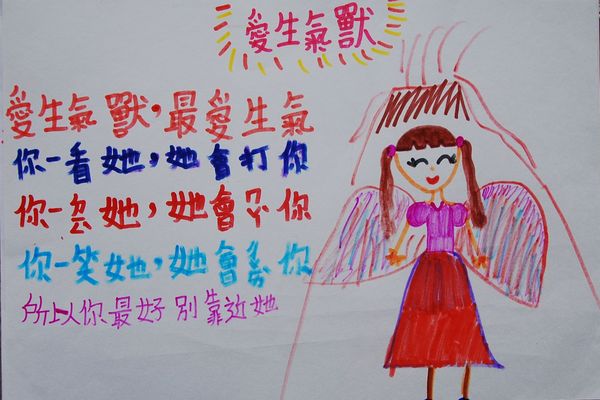 愛生氣獸
愛生氣獸,最愛生氣
你一看她,她會打你
你一 她,她會 你
你一笑她,她會 你
所以你最好別靠近她